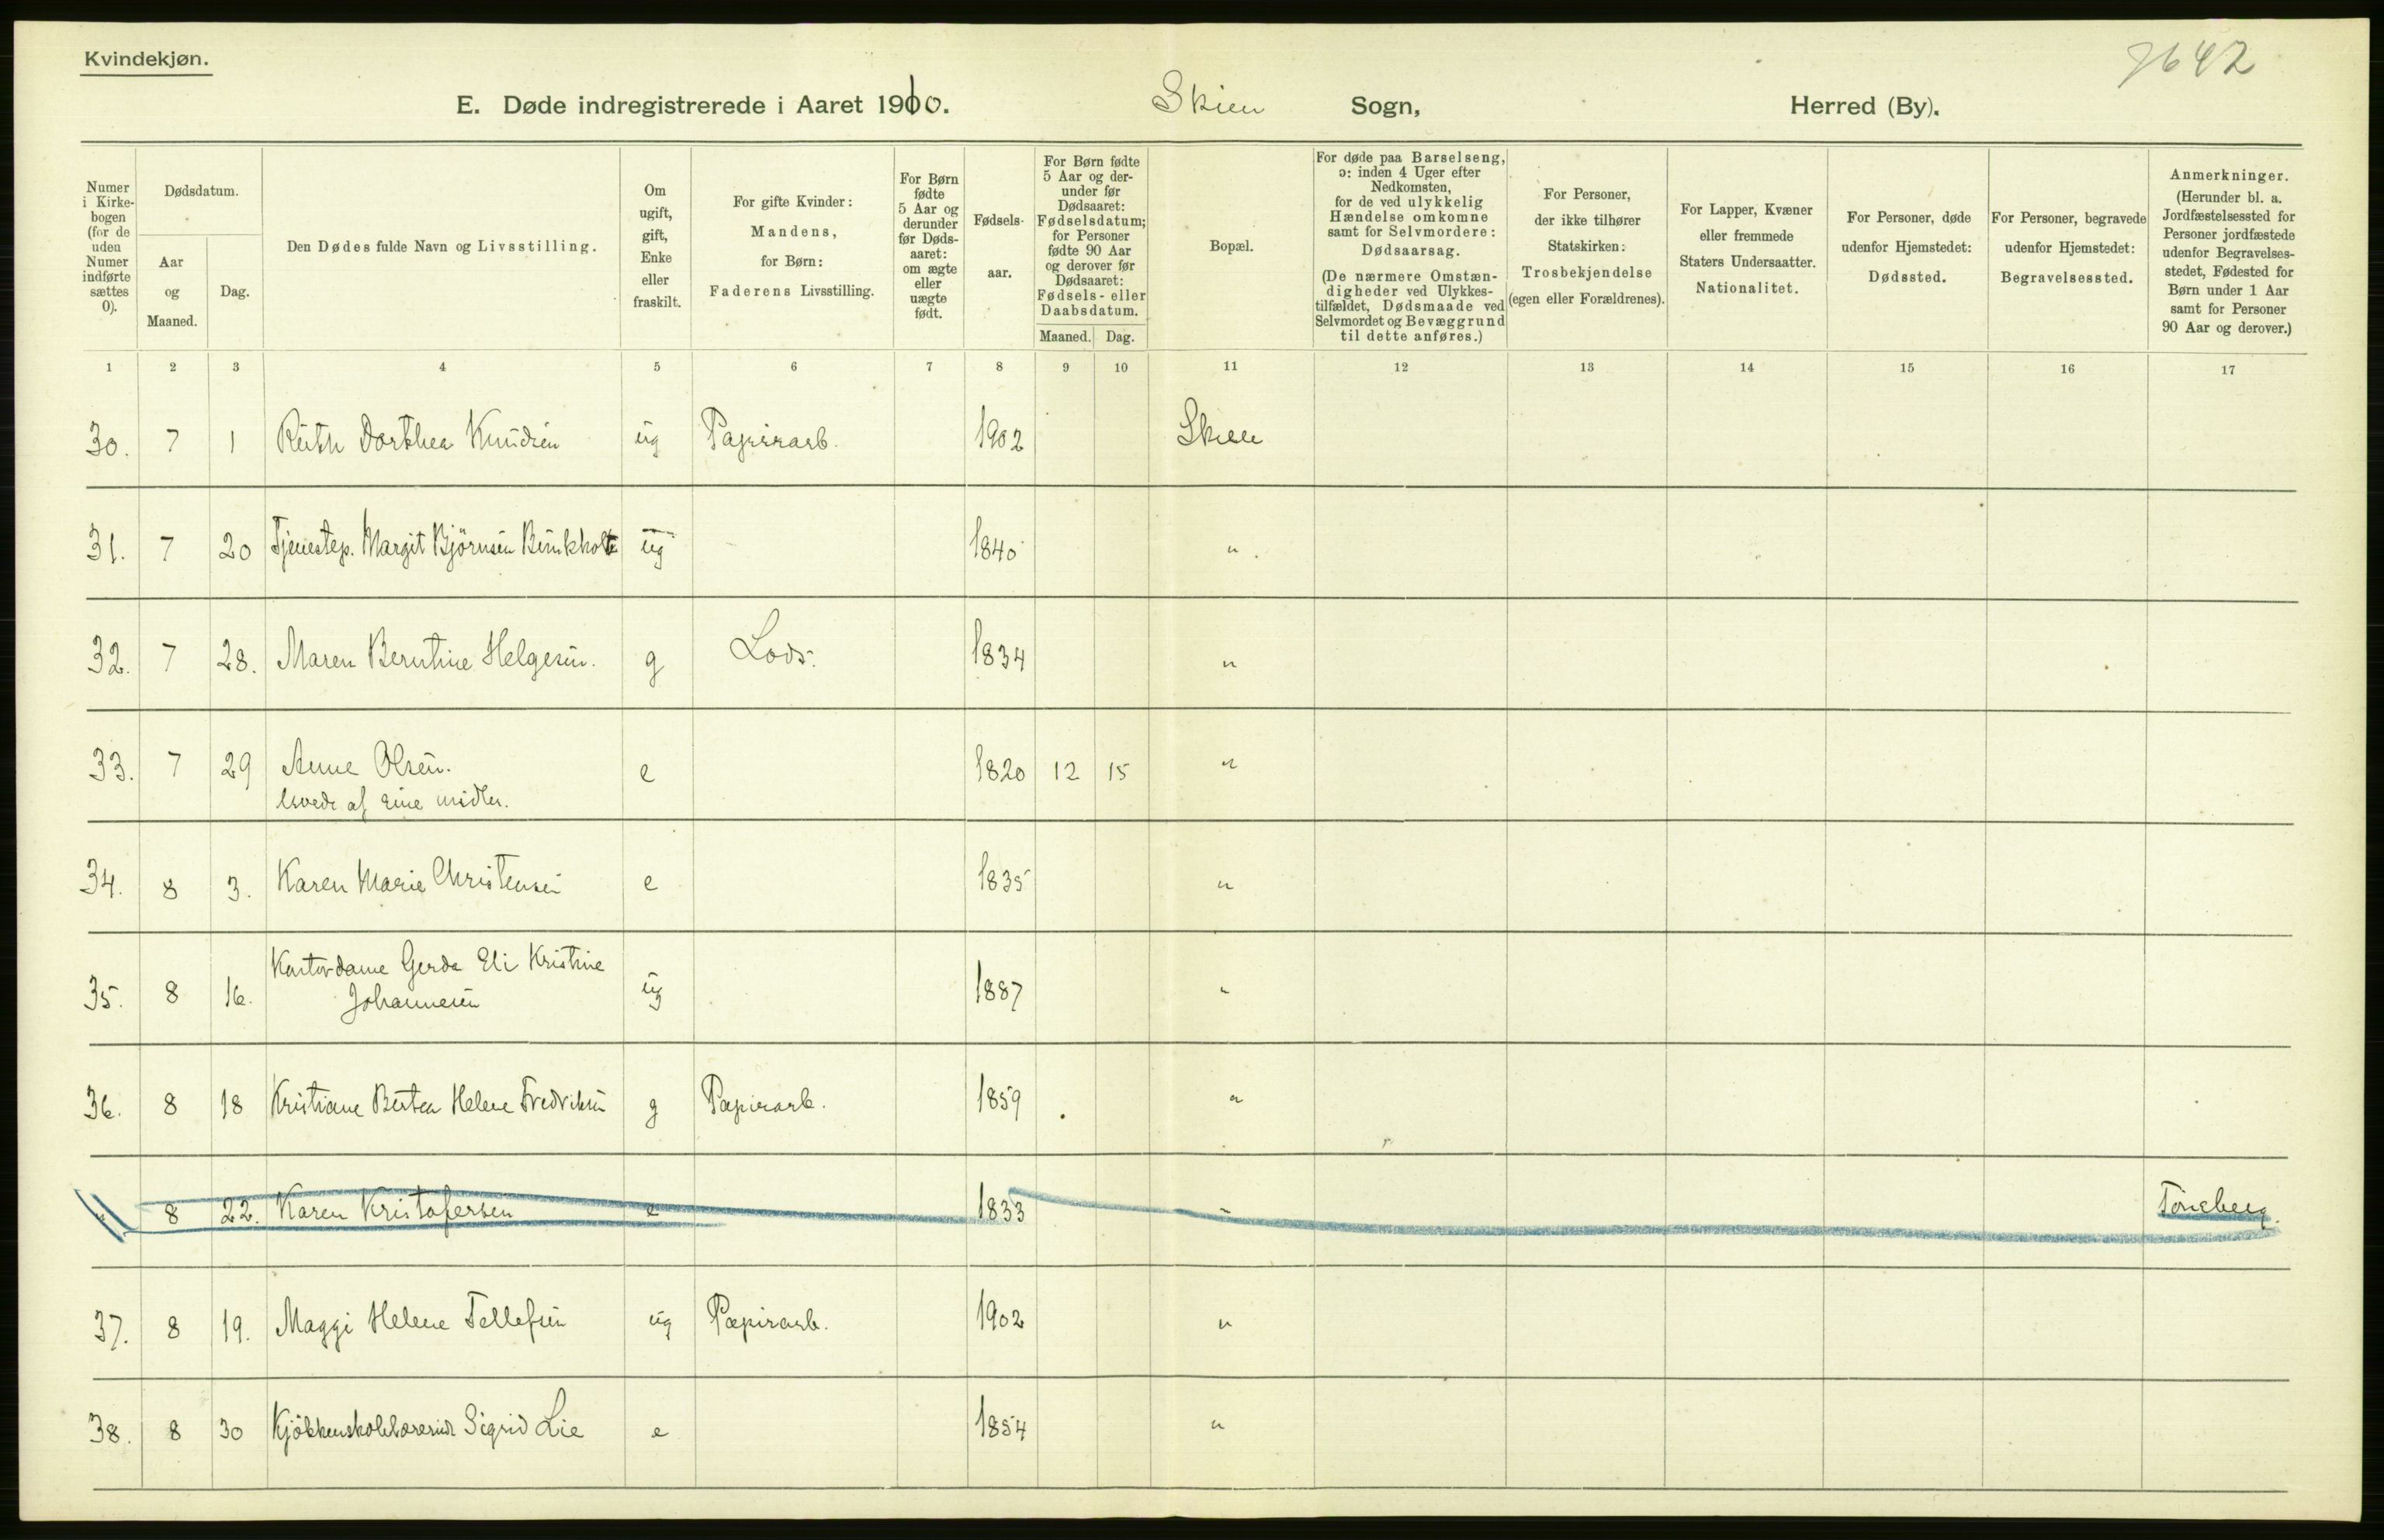 Kvindekjøn.
7642
E. Døde indregistrerede i Aaret 1910. Skien Sogn, Herred (By).
Numer i Kirkebogen (for de uden Numer indførte sættes 0).
Dødsdatum.
Aar og Maaned.
Dag.
Den Dødes fulde Navn og Livsstilling.
Om ugift, gift, Enke eller fraskilt.
For gifte Kvinder: Mandens, for Børn: Faderens Livsstilling.
For Børn fødte 5 Aar og derunder før Dødsaaret: om ægte eller uægte født.
Fødselsaar.
For Børn fødte 5 Aar og derunder før Dødsaaret: Fødselsdatum; for Personer fødte 90 Aar og derover før Dødsaaret: Fødsels- eller Daabsdatum.
Maaned. Dag.
Bopæl.
For døde paa Barselseng, ɔ: inden 4 Uger efter Nedkomsten, for de ved ulykkelig Hændelse omkomne samt for Selvmordere: Dødsaarsag. (De nærmere Omstændigheder ved Ulykkestilfældet, Dødsmaade ved Selvmordet og Bevæggrund til dette anføres.)
For Personer, der ikke tilhører Statskirken: Trosbekjendelse (egen eller Forældrenes).
For Lapper, Kvæner eller fremmede Staters Undersaatter. Nationalitet.
For Personer, døde udenfor Hjemstedet: Dødssted.
For Personer, begravede udenfor Hjemstedet: Begravelsessted.
Anmerkninger. (Herunder bl. a. Jordfæstelsessted for Personer jordfæstede udenfor Begravelsesstedet, Fødested for Børn under 1 Aar samt for Personer 90 Aar og derover.)
1 2 3 4 5 6 7 8 9 10 11 12 13 14 15 16 17
30. 7 1 Ruth Dorthea Knudsen ug Papirarb. 1902 Skien
31. 7 20 Tjenestep. Margit Björnsen ug 1840 "
32. 7 28. Maren Berntine Helgesen. g Lods. 1834 "
33. 7 29 Anne Olsen. e 1820 12 15 "
levede af sine midler.
34. 8 3. Karen Marie Christensen e 1835 "
35. 8 16. Kontordame Gerda Eli Kristine ug 1887 "
Johannesen
36. 8 18 Kristiane Bertea Helene Fredriksen g Papirarb. 1859 "
" 8 22. Karen Kristofersen e 1833 "
37. 8 19. Maggi Helene Tellefsen ug Papirarb. 1902 "
38. 8 30 Kjökkenskolelærerinde Sigrid Lie e 1854 "